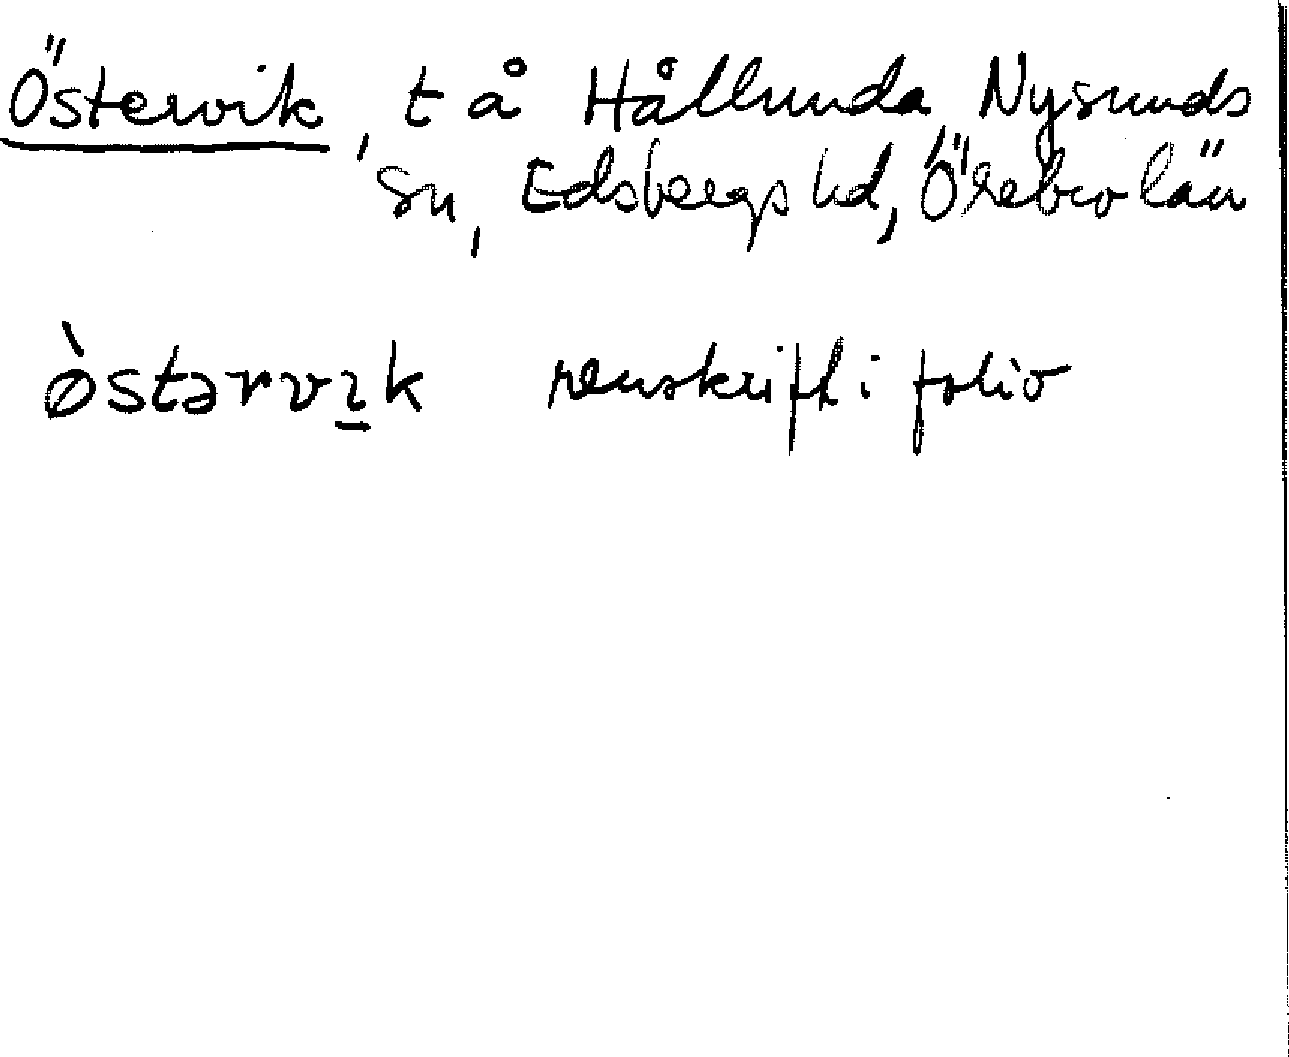 Östervik, t å Hållunda, Nysunds
sn, Edsbergs hd, Örebro län
ø̀stərvı̠k renskrift i folio